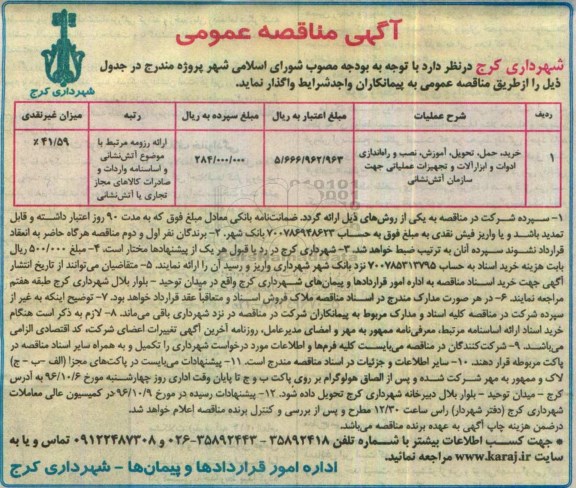 آگهی مناقصه عمومی
شهرداری کرج
شهرداری کرج درنظر دارد با توجه به بودجه مصوب شورای اسلامی شهر پروژه مندرج در جدول
ذیل را ازطریق مناقصه عمومی به پیمانکاران واجدشرایط واگذار نماید.
ردیف شرح عملیات مبلغ اعتبار به ریال مبلغ سپرده به ریال رتبه میزان غیرنقدی
۱ خرید، حمل، تحویل، آموزش، نصب و راه‌اندازی ادوات و ابزارآلات و تجهیزات عملیاتی جهت سازمان آتش‌نشانی ۵/۶۶۶/۹۶۲/۹۶۳ ۲۸۴/۰۰۰/۰۰۰ ارائه رزومه مرتبط با موضوع آتش‌نشانی و اساسنامه واردات و صادرات کالاهای مجاز تجاری یا آتش‌نشانی ۴۱/۵۹ ٪
۱- سپرده شرکت در مناقصه به یکی از روش‌های ذیل ارائه گردد. ضمانت‌نامه بانکی معادل مبلغ فوق که به مدت ۹۰ روز اعتبار داشته و قابل
تمدید باشد و یا واریز فیش نقدی به مبلغ فوق به حساب ۷۰۰۷۸۶۹۴۸۶۲۳ بانک شهر. ۲- برندگان نفر اول و دوم مناقصه هرگاه حاضر به انعقاد
قرارداد نشوند سپرده آنان به ترتیب ضبط خواهد شد. ۳- شهرداری کرج در رد یا قبول هر یک از پیشنهادها مختار است. ۴- مبلغ ۵۰۰/۰۰۰ ریال
بابت هزینه خرید اسناد به حساب ۷۰۰۷۸۵۳۱۳۷۹۵ نزد بانک شهر شهرداری واریز و رسید آن را ارائه نمایند. ۵- متقاضیان می‌توانند از تاریخ انتشار
آگهی جهت خرید اسناد مناقصه به اداره امور قراردادها و پیمان‌های شهرداری کرج واقع در میدان توحید - بلوار بلال شهرداری کرج طبقه هفتم
مراجعه نمایند. ۶- در هر صورت مدارک مندرج در اسناد مناقصه ملاک فروش اسناد و متعاقباً عقد قرارداد خواهد بود. ۷- توضیح اینکه به غیر از
سپرده شرکت در مناقصه کلیه اسناد و مدارک مربوط به پیمانکاران شرکت در مناقصه در نزد شهرداری باقی می‌ماند. ۸- لازم به ذکر است هنگام
خرید اسناد ارائه اساسنامه مرتبط، معرفی‌نامه ممهور به مهر و امضای مدیرعامل، روزنامه آخرین آگهی تغییرات اعضای شرکت، کد اقتصادی الزامی
می‌باشند. ۹- شرکت‌کنندگان در مناقصه می‌بایست کلیه فرم‌ها و اطلاعات مورد درخواست شهرداری را تکمیل و به همراه سایر اسناد مناقصه در
پاکت مربوطه قرار دهند. ۱۰- سایر اطلاعات و جزئیات در اسناد مناقصه مندرج است. ۱۱- پیشنهادات می‌بایست در پاکت‌های مجزا (الف - ب - ج)
لاک و ممهور به مهر شرکت شده و پس از الصاق هولوگرام بر روی پاکت ب و ج تا پایان وقت اداری روز چهارشنبه مورخ ۹۶/۱۰/۶ به آدرس
کرج - میدان توحید - بلوار بلال دبیرخانه شهرداری کرج تحویل داده شود. ۱۲- پیشنهادات رسیده در مورخ ۹۶/۱۰/۹ در کمیسیون عالی معاملات
شهرداری کرج (دفتر شهردار) راس ساعت ۱۲/۳۰ مطرح و پس از بررسی و کنترل برنده مناقصه اعلام خواهد شد.
درضمن هزینه چاپ آگهی به عهده برنده مناقصه می‌باشد.
● جهت کسب اطلاعات بیشتر با شماره تلفن ۳۵۸۹۲۴۱۸ - ۳۵۸۹۲۴۴۳-۰۲۶ و ۰۹۱۲۲۴۸۷۳۰۸ تماس و یا به
سایت www.karaj.ir مراجعه نمائید.
اداره امور قراردادها و پیمان‌ها - شهرداری کرج